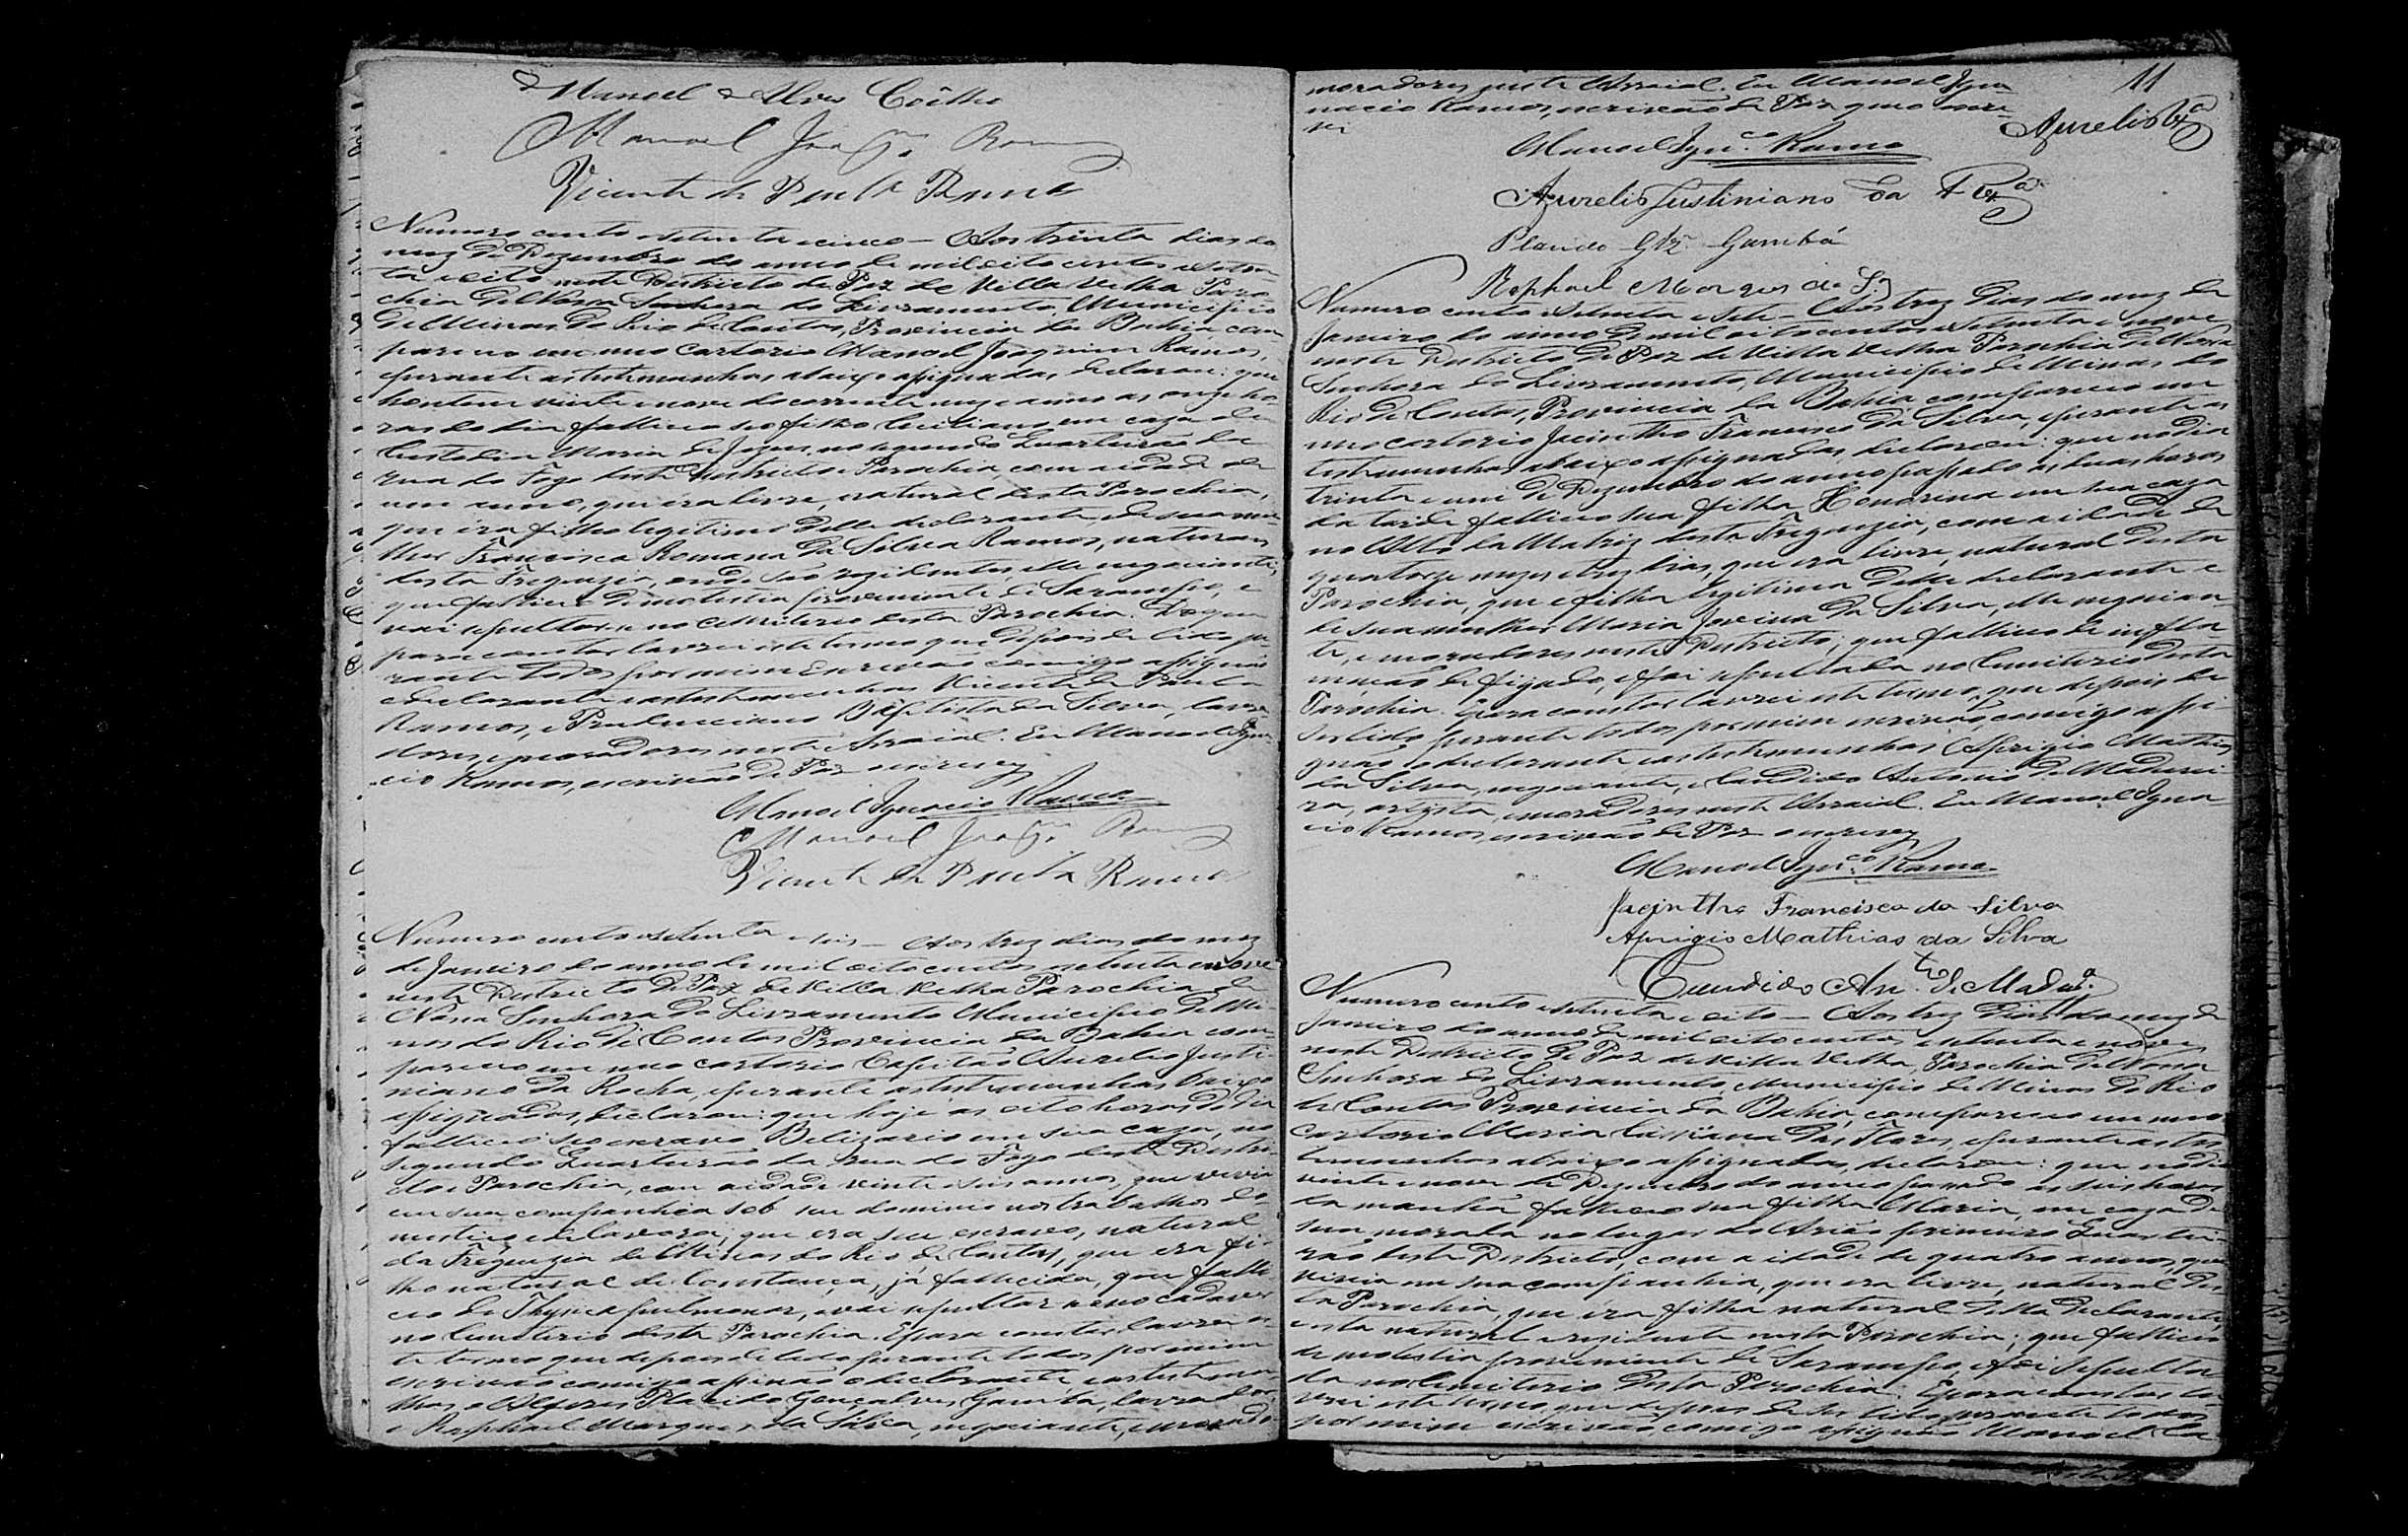 Manoel Alves Coêlho
Manoel Joaqm Ramos
Vicente de Paula Ramos
Numero cento setenta e cinco — Aos trinta dias do
mez de Dezembro do anno de mil oito centos e seten-
ta e oito neste Districto de Paz de Villa Velha Paro-
chia de Nossa Senhora do Livramento, Municipio
de Minas do Rio de Contas, Provincia da Bahia, com-
pareceo em meo Cartorio Manoel Joaquim Ramos,
e perante as testemunhas abaixo assignadas, declarou: que
hontem vinte e nove do corrente mez e anno as onze ho-
ras do dia falleceo seo filho em caza de
Custodia Maria de Jezus, no segundo Quarteirão da
rua do Fogo deste Districto e Parochia, com a idade de
um anno, que era livre, e natural desta Parochia,
que era filho legitimo delle declarante e de sua mu-
lher Francisca Romana da Silva Ramos, naturaes
desta Freguezia, onde são rezidentes, elle negociante,
que falleceo de molestia proveniente de Sarampo, e
vai sepultar-se no Cemiterio desta Parochia. Do que
para constar lavrei este termo que depois de lido pe-
rante todos por mim Escrivão comigo assignão
o declarante e as testemunhas Vicente de Paula
Ramos, e Prudenciano Baptista da Silva, lavra-
dores, e moradores neste Arraial. Eu Manoel Igna-
cio Ramos, escrivão de Paz escrevy
Manoel Ignacio Ramos
Manoel Joaqm Ramos
Vicente de Paula Ramos
Numero cento setenta e seis — Aos trez dias do mez
de Janeiro do anno de mil oito centos e setenta e nove
neste Districto de Paz de Villa Velha Parochia de
Nossa Senhora do Livramento Municipio de Mi-
nas do Rio de Contas Provincia da Bahia com-
pareceo em meo cartorio Capitão Aurelio Justi-
niano da Rocha, e perante as testemunhas abaixo
assignadas, declarou: que hoje as oito horas do dia
falleceo seo escravo Belizario em sua caza, no
segundo Quarteirão da rua do Fogo deste Distri-
cto e Parochia, com a idade vinte e seis annos, que vivia
em sua companhia sob seu dominio nos trabalhos do
mestiço de lavoura; que era seu escravo, natural
da Freguezia de Minas do Rio de Contas, que era fi-
lho natural de Constança, já fallecida, que falle-
ceo de Thysica pulmonar, e vai sepultar-se seo cadaver
no Cemiterio desta Parochia. E para constar lavrei es-
te termo que depois de lido perante todos por mim
escrivão comigo assignão o declarante e as testemu-
nhas o Alferes Placido Gonçalves Gambá, lavrador
e Raphael Marques da Silva, negociante, e morado-
11
moradores neste Arraial. Eu Manoel Igna-
nacio Ramos, escrivão de Paz que o escre-
vi
Aurelio Rxa
Manoel Ignco Ramos
Aurelio Justiniano da Rxa
Placido Glz Gambá
Raphael Marques da Sa
Numero cento setenta e sete — Aos trez dias do mez de
Janeiro do anno de mil oito centos e setenta e nove
neste Districto de Paz de Villa Velha Parochia de Nossa
Senhora do Livramento, Municipio de Minas do
Rio de Contas, Provincia da Bahia compareceo em
meo cartorio Jacintho Francisco da Silva, e perante as
testemunhas abaixo assignadas declarou: que no dia
trinta e um de Dezembro do anno passado as duas horas
da tarde falleceo sua filha Honorina em sua caza
no Alto da Matriz desta Freguezia, com a idade de
quatorze mezes e trez dias, que era livre, natural desta
Parochia, que é filha legitima delle declarante e
de sua mulher Maria Jovina da Silva, elle negocian-
te, e moradores neste Districto; que falleceo de infla-
mação de figado, e foi sepultada no Cemiterio desta
Parochia. E para constar lavrei este termo, que depois de
ser lido perante todos por mim escrivão, comigo assi-
gnão o declarante e as testemunhas Aprigio Mathias
da Silva, negociante, e Candido Antonio de Madurei-
ra, artista, e moradores neste Arraial. Eu Manoel Igna-
cio Ramos, escrivão de Paz escrevy
Manoel Ignco Ramos
Jacintho Francisco da Silva
Aprigio Mathias da Silva
Candido Anto de Madra
Numero cento e setenta e oito — Aos trez dias do mez de
Janeiro do anno de mil oito centos e setenta e nove,
neste Districto de Paz de Villa Velha, Parochia de Nossa
Senhora do Livramento, Municipio de Minas do Rio
de Contas Provincia da Bahia, compareceo em meo
Cartorio Maria das Flores, e perante as tes-
temunhas abaixo assignadas, declarou: que no dia
vinte e nove de Dezembro do anno passado as seis horas
da manhã falleceo sua filha Maria, em caza de
sua morada no lugar do primeiro Quartei-
rão deste Districto, com a idade de quatro annos, que
vivia em sua companhia, que era livre, natural des-
ta Parochia, que era filha natural della declarante,
esta natural e rezidente nesta Parochia; que falleceo
de molestia proveniente de Sarampo e foi sepulta-
da no Cemiterio desta Parochia. E para constar la-
vrei este termo, que depois de ser lido perante todos
por mim escrivão, comigo assignão Manoel